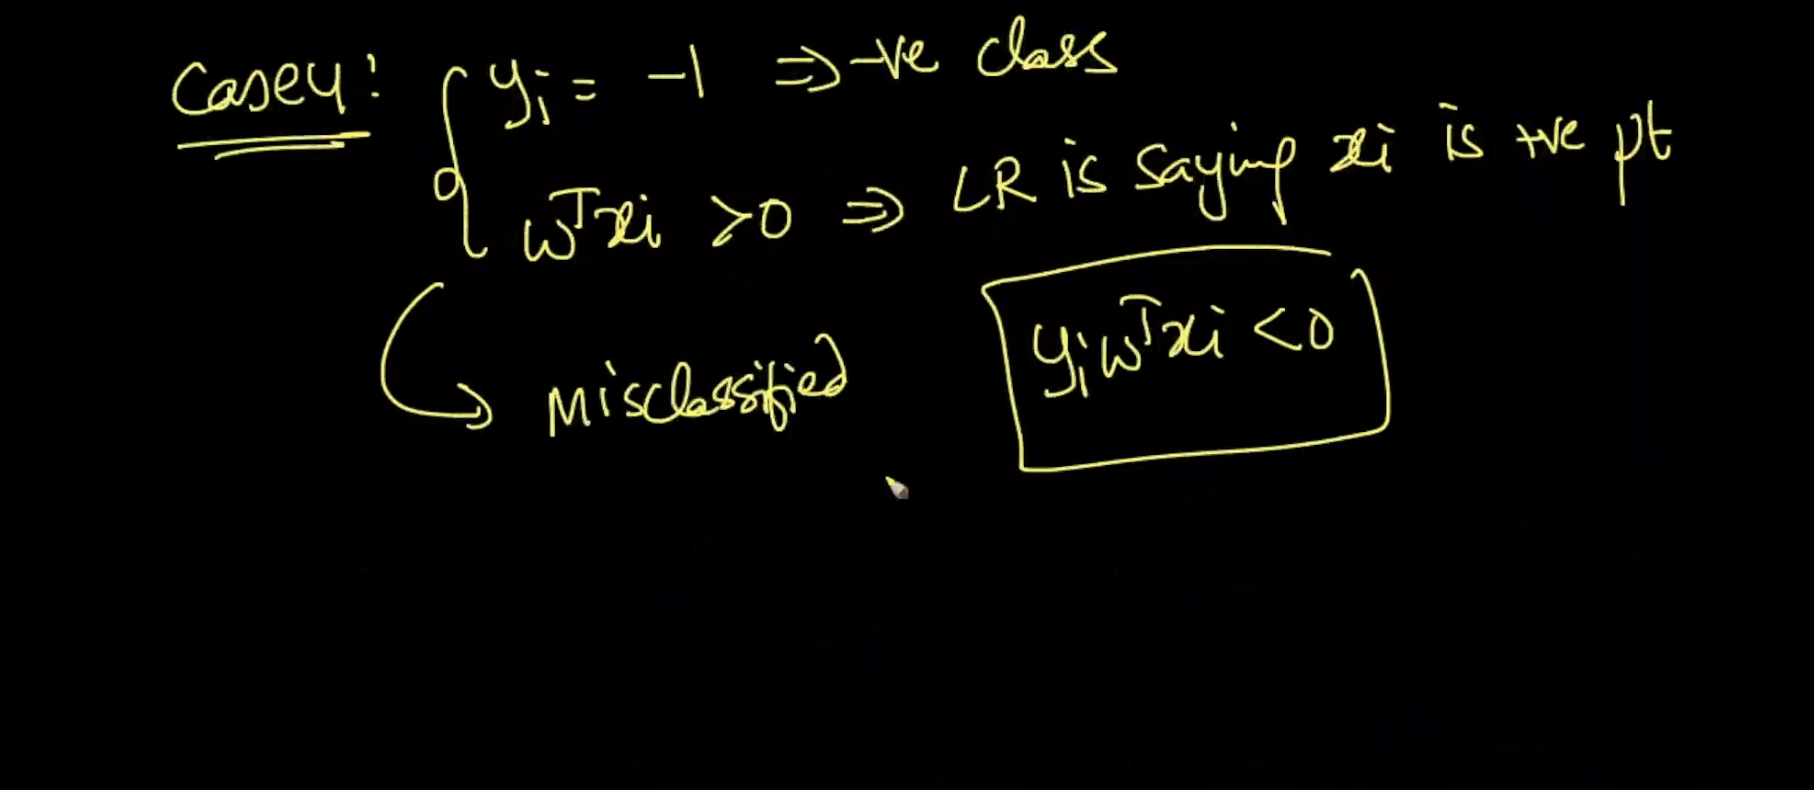 Case4: { yi = -1 ⇒ -ve class
wᵀxi >0 ⇒ LR is saying xi is +ve pt
↳ misclassified
yiwᵀxi <0